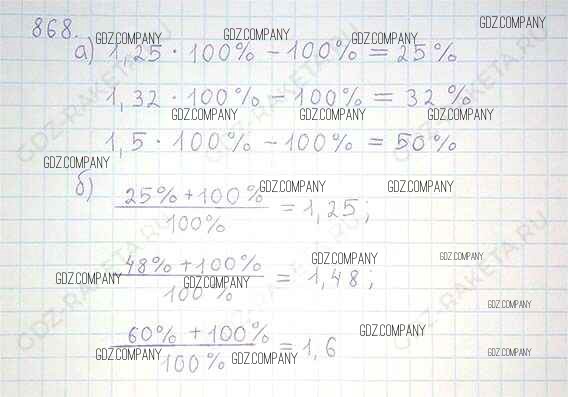 868.
GDZ.COMPANY GDZ.COMPANY GDZ.COMPANY GDZ.COMPANY
а) 1,25 · 100% − 100% = 25%
1,32 · 100% − 100% = 32%
GDZ.COMPANY GDZ.COMPANY GDZ.COMPANY
1,5 · 100% − 100% = 50%
GDZ.COMPANY
б)
GDZ.COMPANY GDZ.COMPANY
25% + 100%
100%
= 1,25;
GDZ.COMPANY GDZ.COMPANY
48% + 100%
100%
= 1,48;
GDZ.COMPANY GDZ.COMPANY
GDZ.COMPANY
60% + 100%
100%
= 1,6
GDZ.COMPANY
GDZ.COMPANY GDZ.COMPANY GDZ.COMPANY
GDZ-RAKETA.RU
GDZ-RAKETA.RU
GDZ-RAKETA.RU
GDZ-RAKETA.RU
GDZ-RAKETA.RU
GDZ-RAKETA.RU